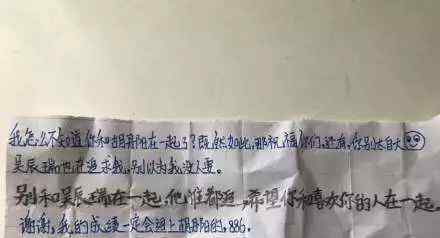 我怎么不知道你和胡寿阳在一起了?既然如此,那祝福你们,还有,你别太自大
吴辰瑞也在追求我,别以为我没人要。
别和吴辰瑞在一起,他谁都追,希望你和喜欢你的人在一起。
谢谢,我的成绩一定会追上胡寿阳的,886。